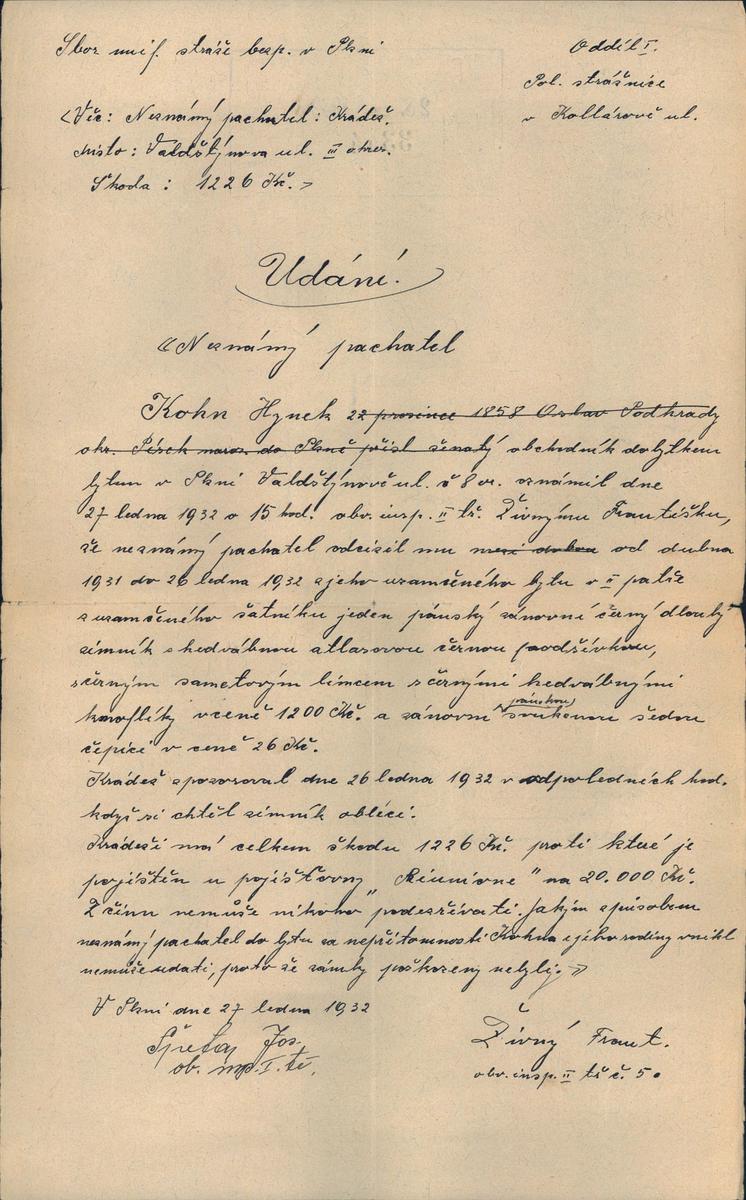 Sbor unif. stráže bezp. v Plzni
Oddíl I.
Pol. strážnice
v Kollárově ul.
Věc: Neznámý pachatel: Krádež.
Místo: Valdštýnova ul. III okres.
Škoda: 1226 Kč.
Udání.
Neznámý pachatel
Kohn Hynek 22 prosince 1858 Podhrady
okr. Písek naroz. do Plzně přísl. ženatý obchodník dobytkem
bytem v Plzni Valdštýnově ul. č 8 oznámil dne
27 ledna 1932 o 15 hod. obv. insp. II tř. Živnýmu Františku,
že neznámý pachatel odcizil mu mezi dubna od dubna
1931 do 26 ledna 1932 z jeho uzamčeného bytu v II patře
z uzamčeného šatníku jeden pánský zánovní černý dlouhý
zimník s hedvábnou atlasovou černou podšívkou,
s černým sametovým límcem s černými hedvábnými
knoflíky v ceně 1200 Kč. a zánovní pánskou soukenou šedou
čepici v ceně 26 Kč.
Krádež zpozoroval dne 26 ledna 1932 v odpoledních hod.
když si chtěl zimník obléci.
Krádeží má celkem škodu 1226 Kč. proti které je
pojištěn u pojišťovny „Riunione" na 20.000 Kč.
Z činu nemůže nikoho podezřívati. Jakým způsobem
neznámý pachatel do bytu za nepřítomnosti Kohna i jeho rodiny vnikl
nemůže udati, proto že zámky poškozeny nebyly.
V Plzni dne 27 ledna 1932
Jos.
ob. insp. I. tř.
Živný Frant.
obv. insp. II tř č. 50